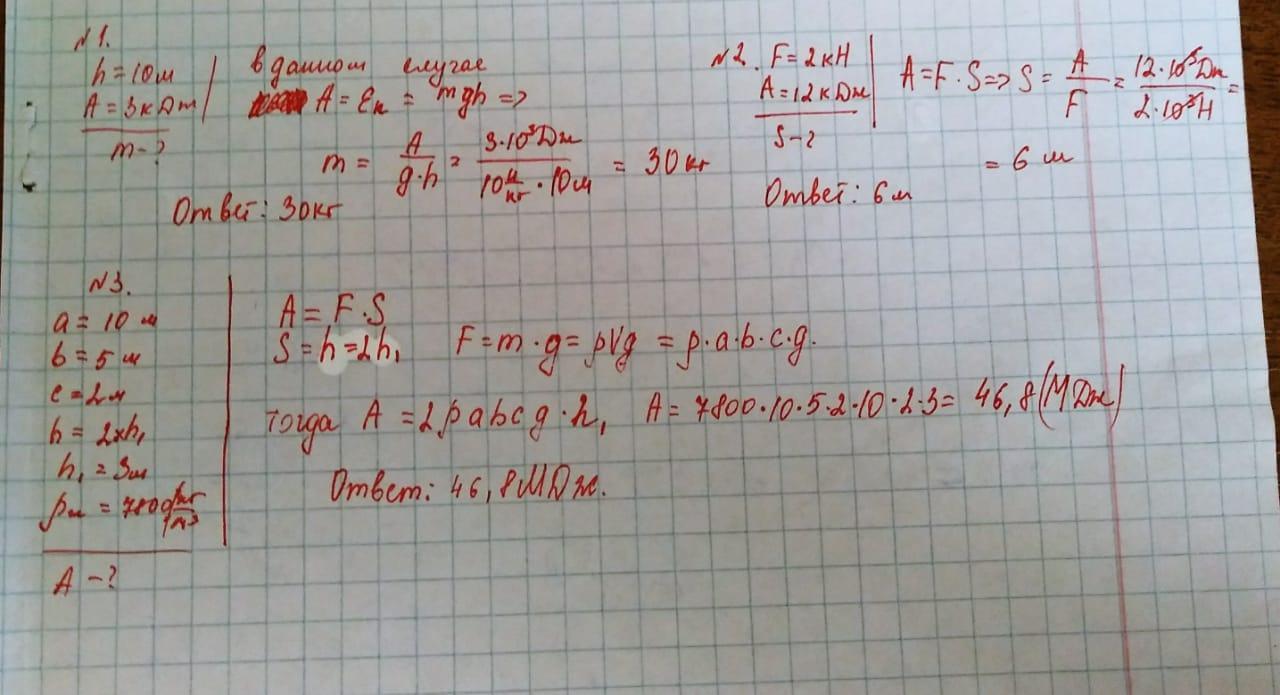 №1.
h = 10м
A = 3кДж
m - ?
в данном случае
A = Eк = mgh =>
m = A / g·h = 3·10³Дж / 10 Н/кг · 10м = 30кг
Ответ: 30кг
№2. F = 2кН
A = 12кДж
S - ?
A = F·S => S = A / F = 12·10³Дж / 2·10³Н =
= 6 м
Ответ: 6м
№3.
a = 10 м
b = 5 м
c = 2м
h = 2×h₁
h₁ = 3м
A - ?
A = F·S
S = h = 2h₁ F = m·g = ρVg = ρ·a·b·c·g.
тогда A = 2ρabcg·h₁ A = 7800·10·5·2·10·2·3 = 46,8(МДж)
Ответ: 46,8МДж.